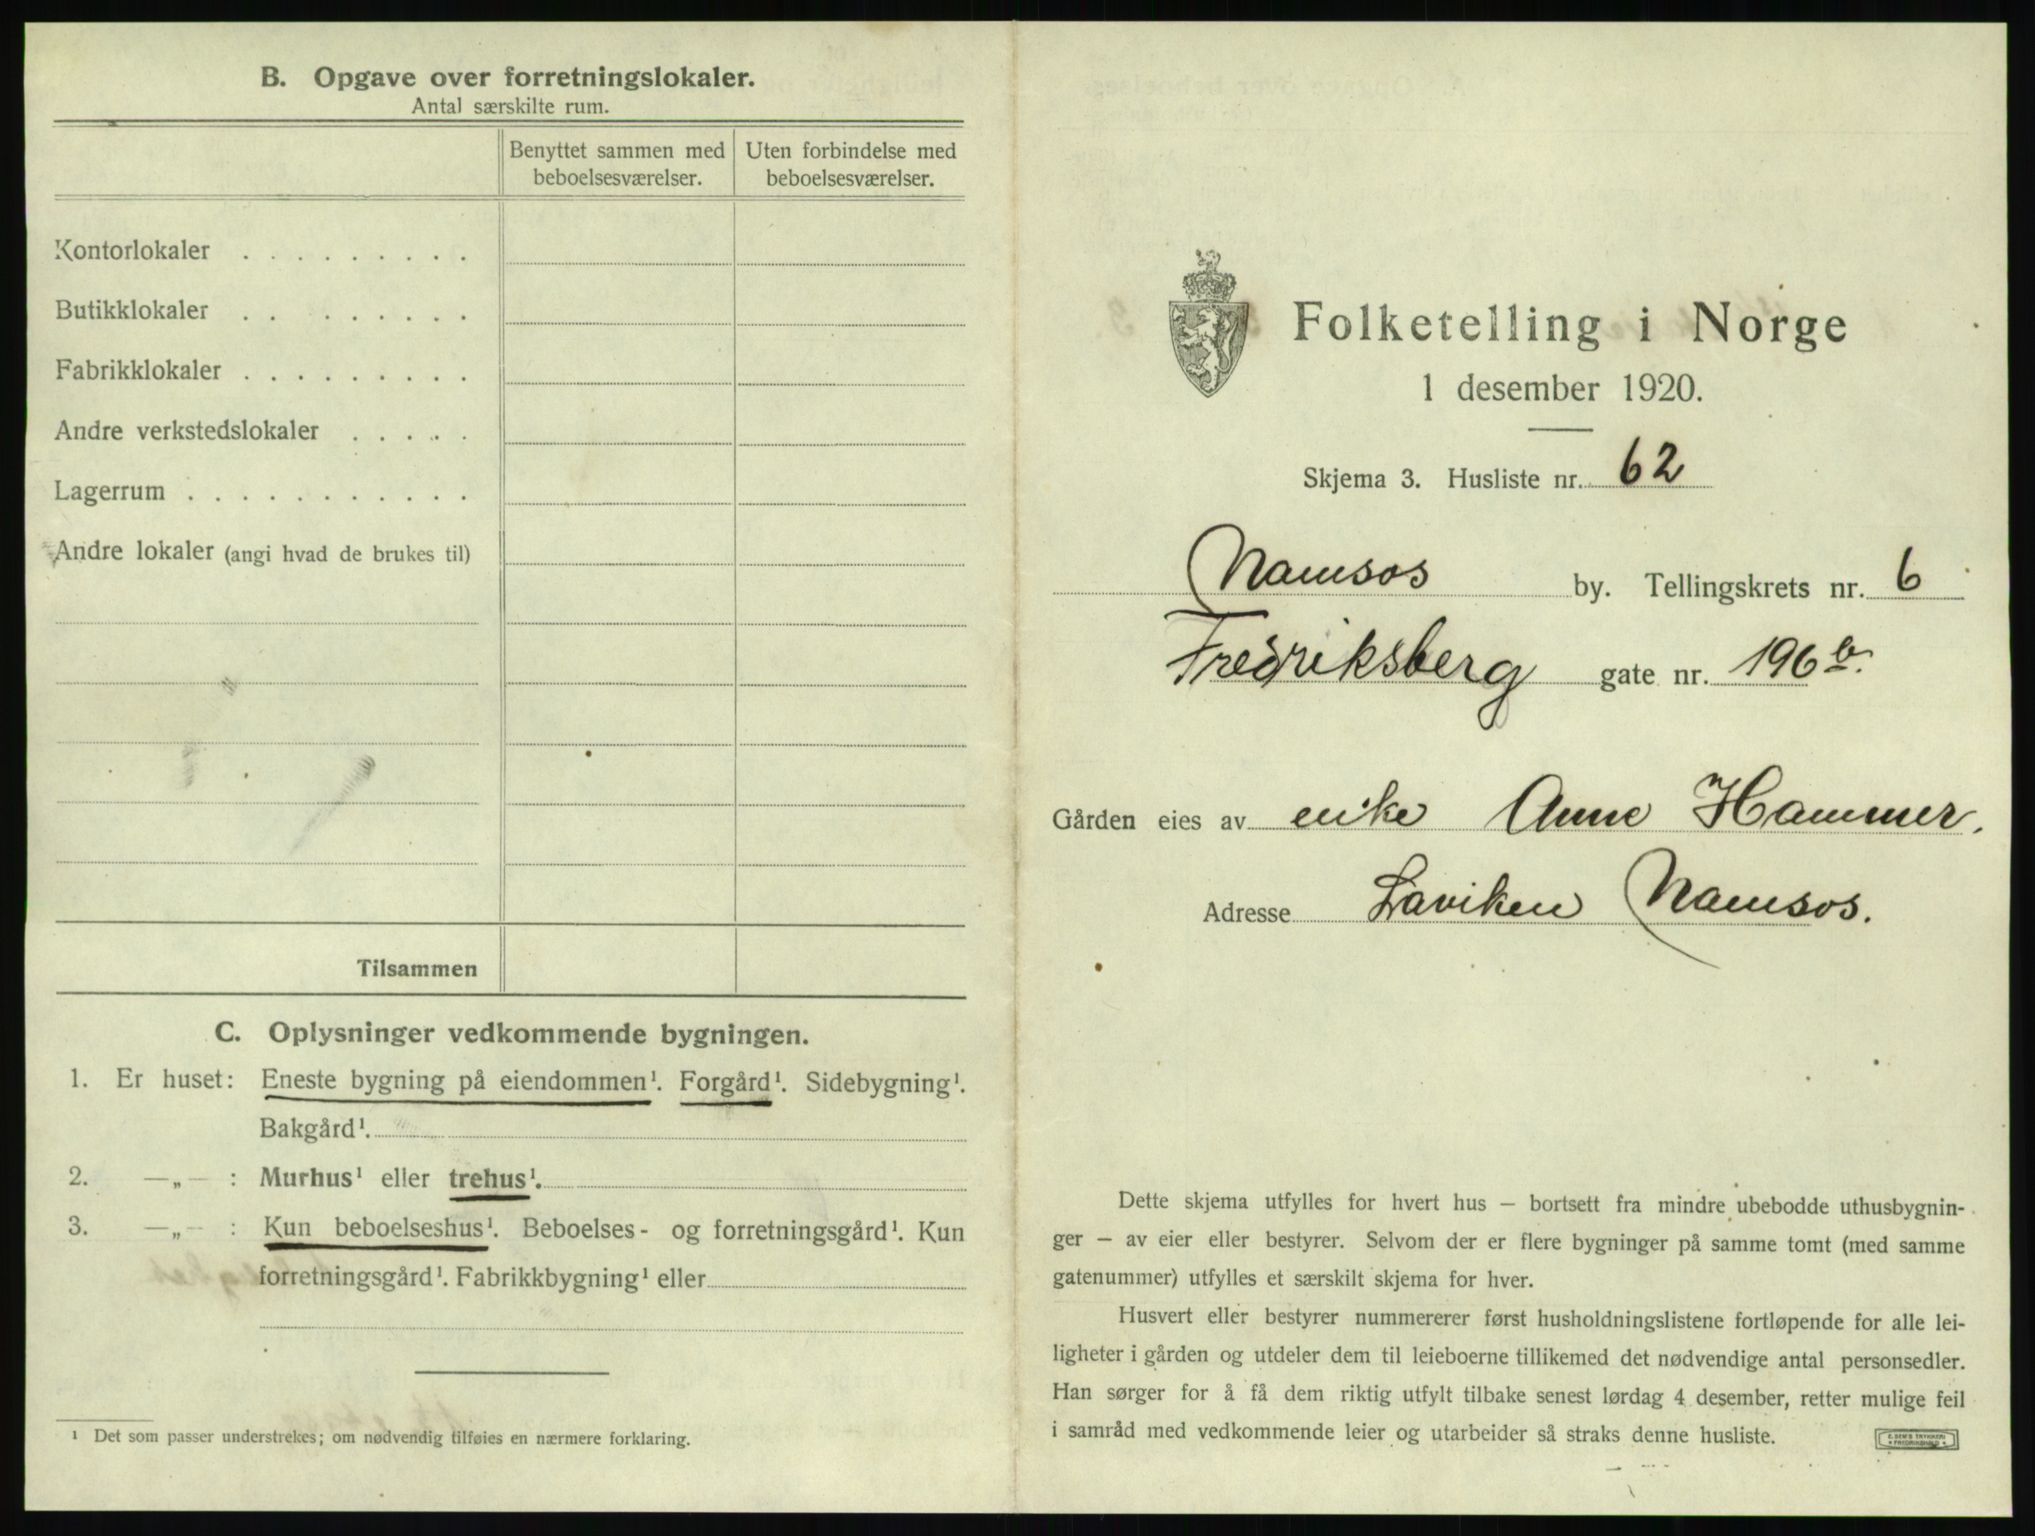 B. Opgave over forretningslokaler.
Antal særskilte rum.
Benyttet sammen med beboelsesværelser.
Uten forbindelse med beboelsesværelser.
Kontorlokaler . . . . . . . . .
Butikklokaler . . . . . . . .
Fabrikklokaler . . . . . . . . .
Andre verkstedslokaler . . . . .
Lagerrum . . . . . . . . . . .
Andre lokaler (angi hvad de brukes til)
Tilsammen
C. Oplysninger vedkommende bygningen.
1. Er huset: Eneste bygning på eiendommen¹. Forgård¹. Sidebygning¹.
Bakgård¹.
2. —„— : Murhus¹ eller trehus¹.
3. —„— : Kun beboelseshus¹. Beboelses- og forretningsgård¹. Kun
forretningsgård¹. Fabrikkbygning¹ eller
¹ Det som passer understrekes; om nødvendig tilføies en nærmere forklaring.
Folketelling i Norge
1 desember 1920.
Skjema 3. Husliste nr. 62
Namsos by. Tellingskrets nr. 6
Fredriksberg gate nr. 196 b.
Gården eies av enke Anne Hammer.
Adresse Laviken Namsos.
Dette skjema utfylles for hvert hus — bortsett fra mindre ubebodde uthusbygnin-
ger — av eier eller bestyrer. Selvom der er flere bygninger på samme tomt (med samme
gatenummer) utfylles et særskilt skjema for hver.
Husvert eller bestyrer nummererer først husholdningslistene fortløpende for alle lei-
ligheter i gården og utdeler dem til leieboerne tillikemed det nødvendige antal personsedler.
Han sørger for å få dem riktig utfylt tilbake senest lørdag 4 desember, retter mulige feil
i samråd med vedkommende leier og utarbeider så straks denne husliste.